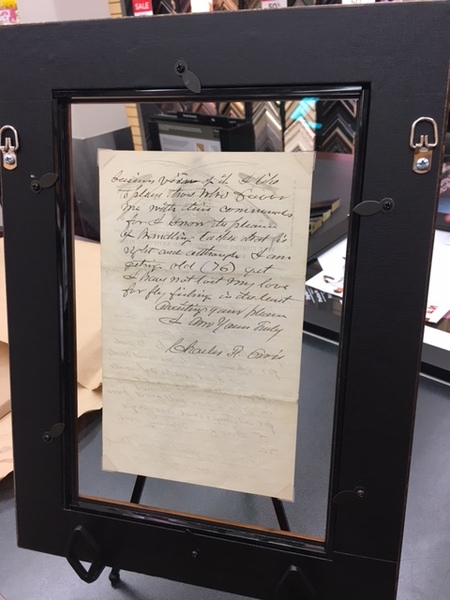 SALE
50%
business view of it I like
to please those who favor
me with their commands
for I know the pleasure
of handling tackle that is
right and although I am
getting old (76) yet
I have not lost my love
for fly fishing in the least
Awaiting your pleasure
I am Yours Truly
Charles F. Orvis